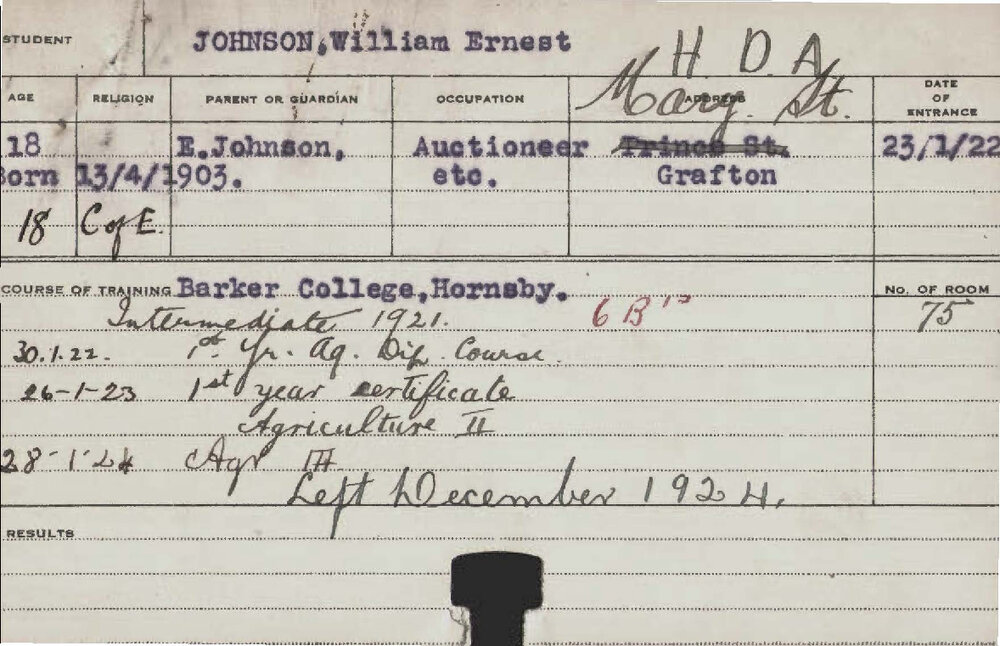 STUDENT JOHNSON, William Ernest
H. D. A
Mary. St.
AGE RELIGION PARENT OR GUARDIAN OCCUPATION ADDRESS DATE OF ENTRANCE
18 E.Johnson, Auctioneer Prince St. 23/1/22
Born 13/4/1903. etc. Grafton
18 C of E.
COURSE OF TRAINING Barker College,Hornsby. No. OF ROOM
Intermediate 1921. 6 B's 75
30.1.22. 1st. Yr. Ag. Dip. Course.
26-1-23 1st year certificate
Agriculture II
28-1-24 Agr III
Left December 1924.
RESULTS